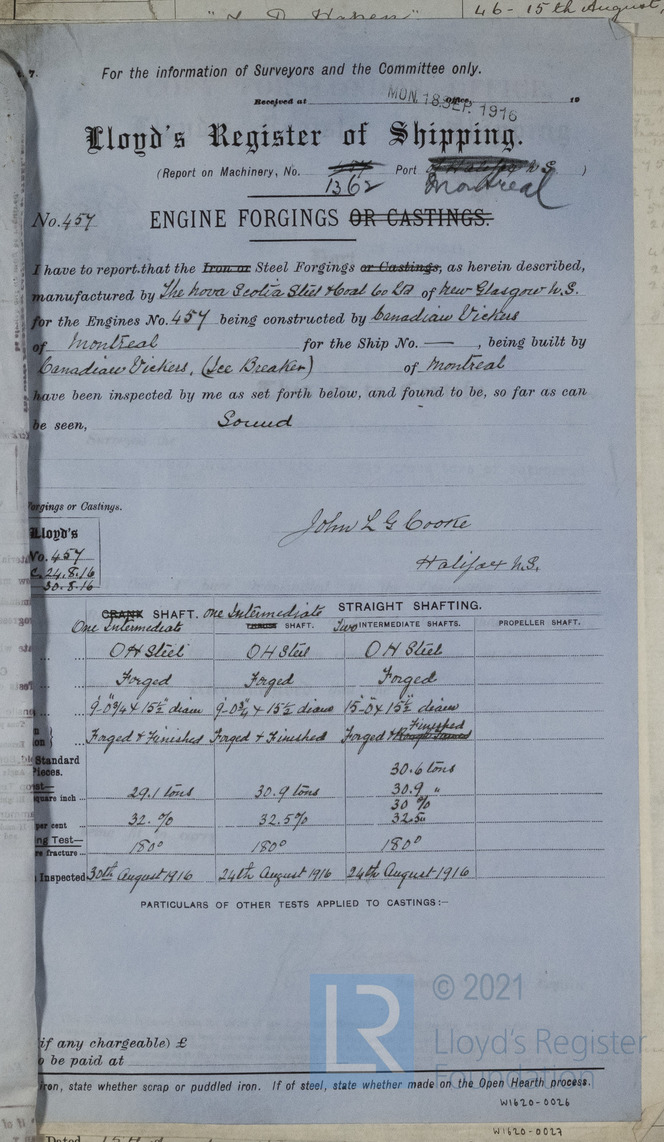 46-15th August,
7.
For the information of Surveyors and the Committee only.
Received at Office 19
MON. 18 SEP. 1916
Lloyd's Register of Shipping.
(Report on Machinery, No. 457 Port of Halifax N.S. )
1362 Montreal
No. 457 ENGINE FORGINGS OR CASTINGS.
I have to report that the Iron or Steel Forgings or Castings, as herein described,
manufactured by The Nova Scotia Steel & Coal Co Ltd of New Glasgow N.S.
for the Engines No. 457 being constructed by Canadian Vickers
of Montreal for the Ship No. — , being built by
Canadian Vickers, (Ice Breaker) of Montreal
have been inspected by me as set forth below, and found to be, so far as can
be seen, Sound
Forgings or Castings.
John L G Cooke
Halifax N.S.
Lloyd's
No. 457
C. 24.8.16
30-8-16
CRANK SHAFT. One Intermediate STRAIGHT SHAFTING.
One Intermediate THRUST SHAFT. Two INTERMEDIATE SHAFTS. PROPELLER SHAFT.
OH Steel OH Steel OH Steel
Forged Forged Forged
9'-0 3/4 x 15 1/2" diam 9'-0 3/4 x 15 1/2 diam 15'-0 x 15 1/2" diam
Finished
Forged & Finished Forged & Finished Forged & Rough Turned
Standard
Pieces.
30.6 tons
square inch 29.1 tons 30.9 tons 30.9 "
30 %
per cent 32. % 32.5% 32.50
ng Test—
re fracture 180° 180° 180°
Inspected 30th August 1916 24th August 1916 24th August 1916
PARTICULARS OF OTHER TESTS APPLIED TO CASTINGS:—
LR
© 2021
Lloyd's Register
Foundation
if any chargeable) £
o be paid at
iron, state whether scrap or puddled iron. If of steel, state whether made on the Open Hearth process.
W1620-0026
W1620-0027
Dated